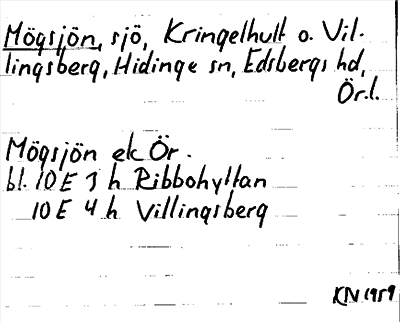 Mögsjön, sjö, Kringelhult o. Vil-
lingsberg, Hidinge sn, Edsbergs hd,
Ör.l.
Mögsjön ek Ör.
bl. 10 E 3 h Ribbohyttan
10 E 4 h Villingsberg
KN 1959